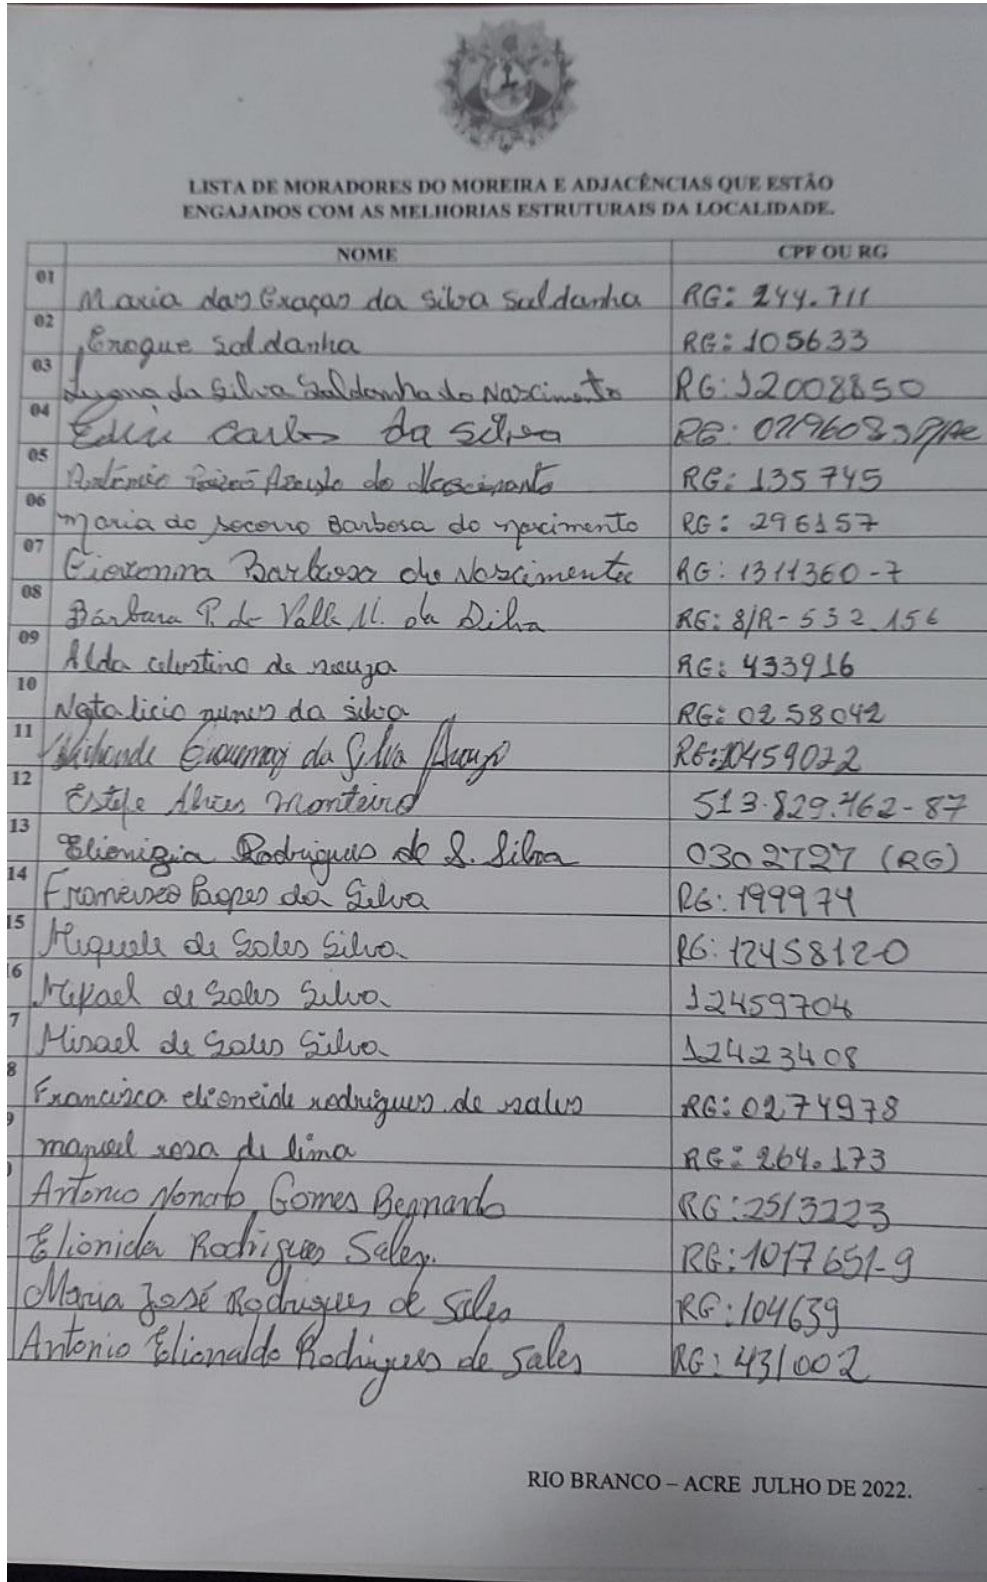 LISTA DE MORADORES DO MOREIRA E ADJACÊNCIAS QUE ESTÃO
ENGAJADOS COM AS MELHORIAS ESTRUTURAIS DA LOCALIDADE.
NOME CPF OU RG
01 Maria das Graças da Silva Saldanha RG: 244.711
02 Enoque Saldanha RG: 105633
03 da Silva Saldanha do Nascimento RG: 12008850
04 Carlos da Silva RG:
05 Antônio do Nascimento RG: 135745
06 Maria do Socorro Barbosa do nascimento RG: 296157
07 Giovanna Barbosa do Nascimento RG: 1311360-7
08 Bárbara P. do Valle M. da Silva RG: 8/R-532.156
09 Alda celestino de souza RG: 433916
10 Natalicio nunes da silva RG: 0258042
11 da Silva Araujo RG: 10459022
12 Alves Monteiro 513.829.762-87
13 Rodrigues de S. Silva 0302727 (RG)
14 Francisco Lopes da Silva RG: 199974
15 de Sales Silva RG: 1245812-0
6 de Sales Silva 12459704
7 Misael de Sales Silva 12423408
8 Francisca elioneide rodrigues de sales RG: 0274978
manoel rosa de lima RG: 264.173
Antonio Nonato Gomes Bernardo RG: 2513223
Elionida Rodrigues Sales. RG: 1017651-9
Maria José Rodrigues de Sales RG: 104639
Antonio Elionaldo Rodrigues de Sales RG: 431002
RIO BRANCO – ACRE JULHO DE 2022.